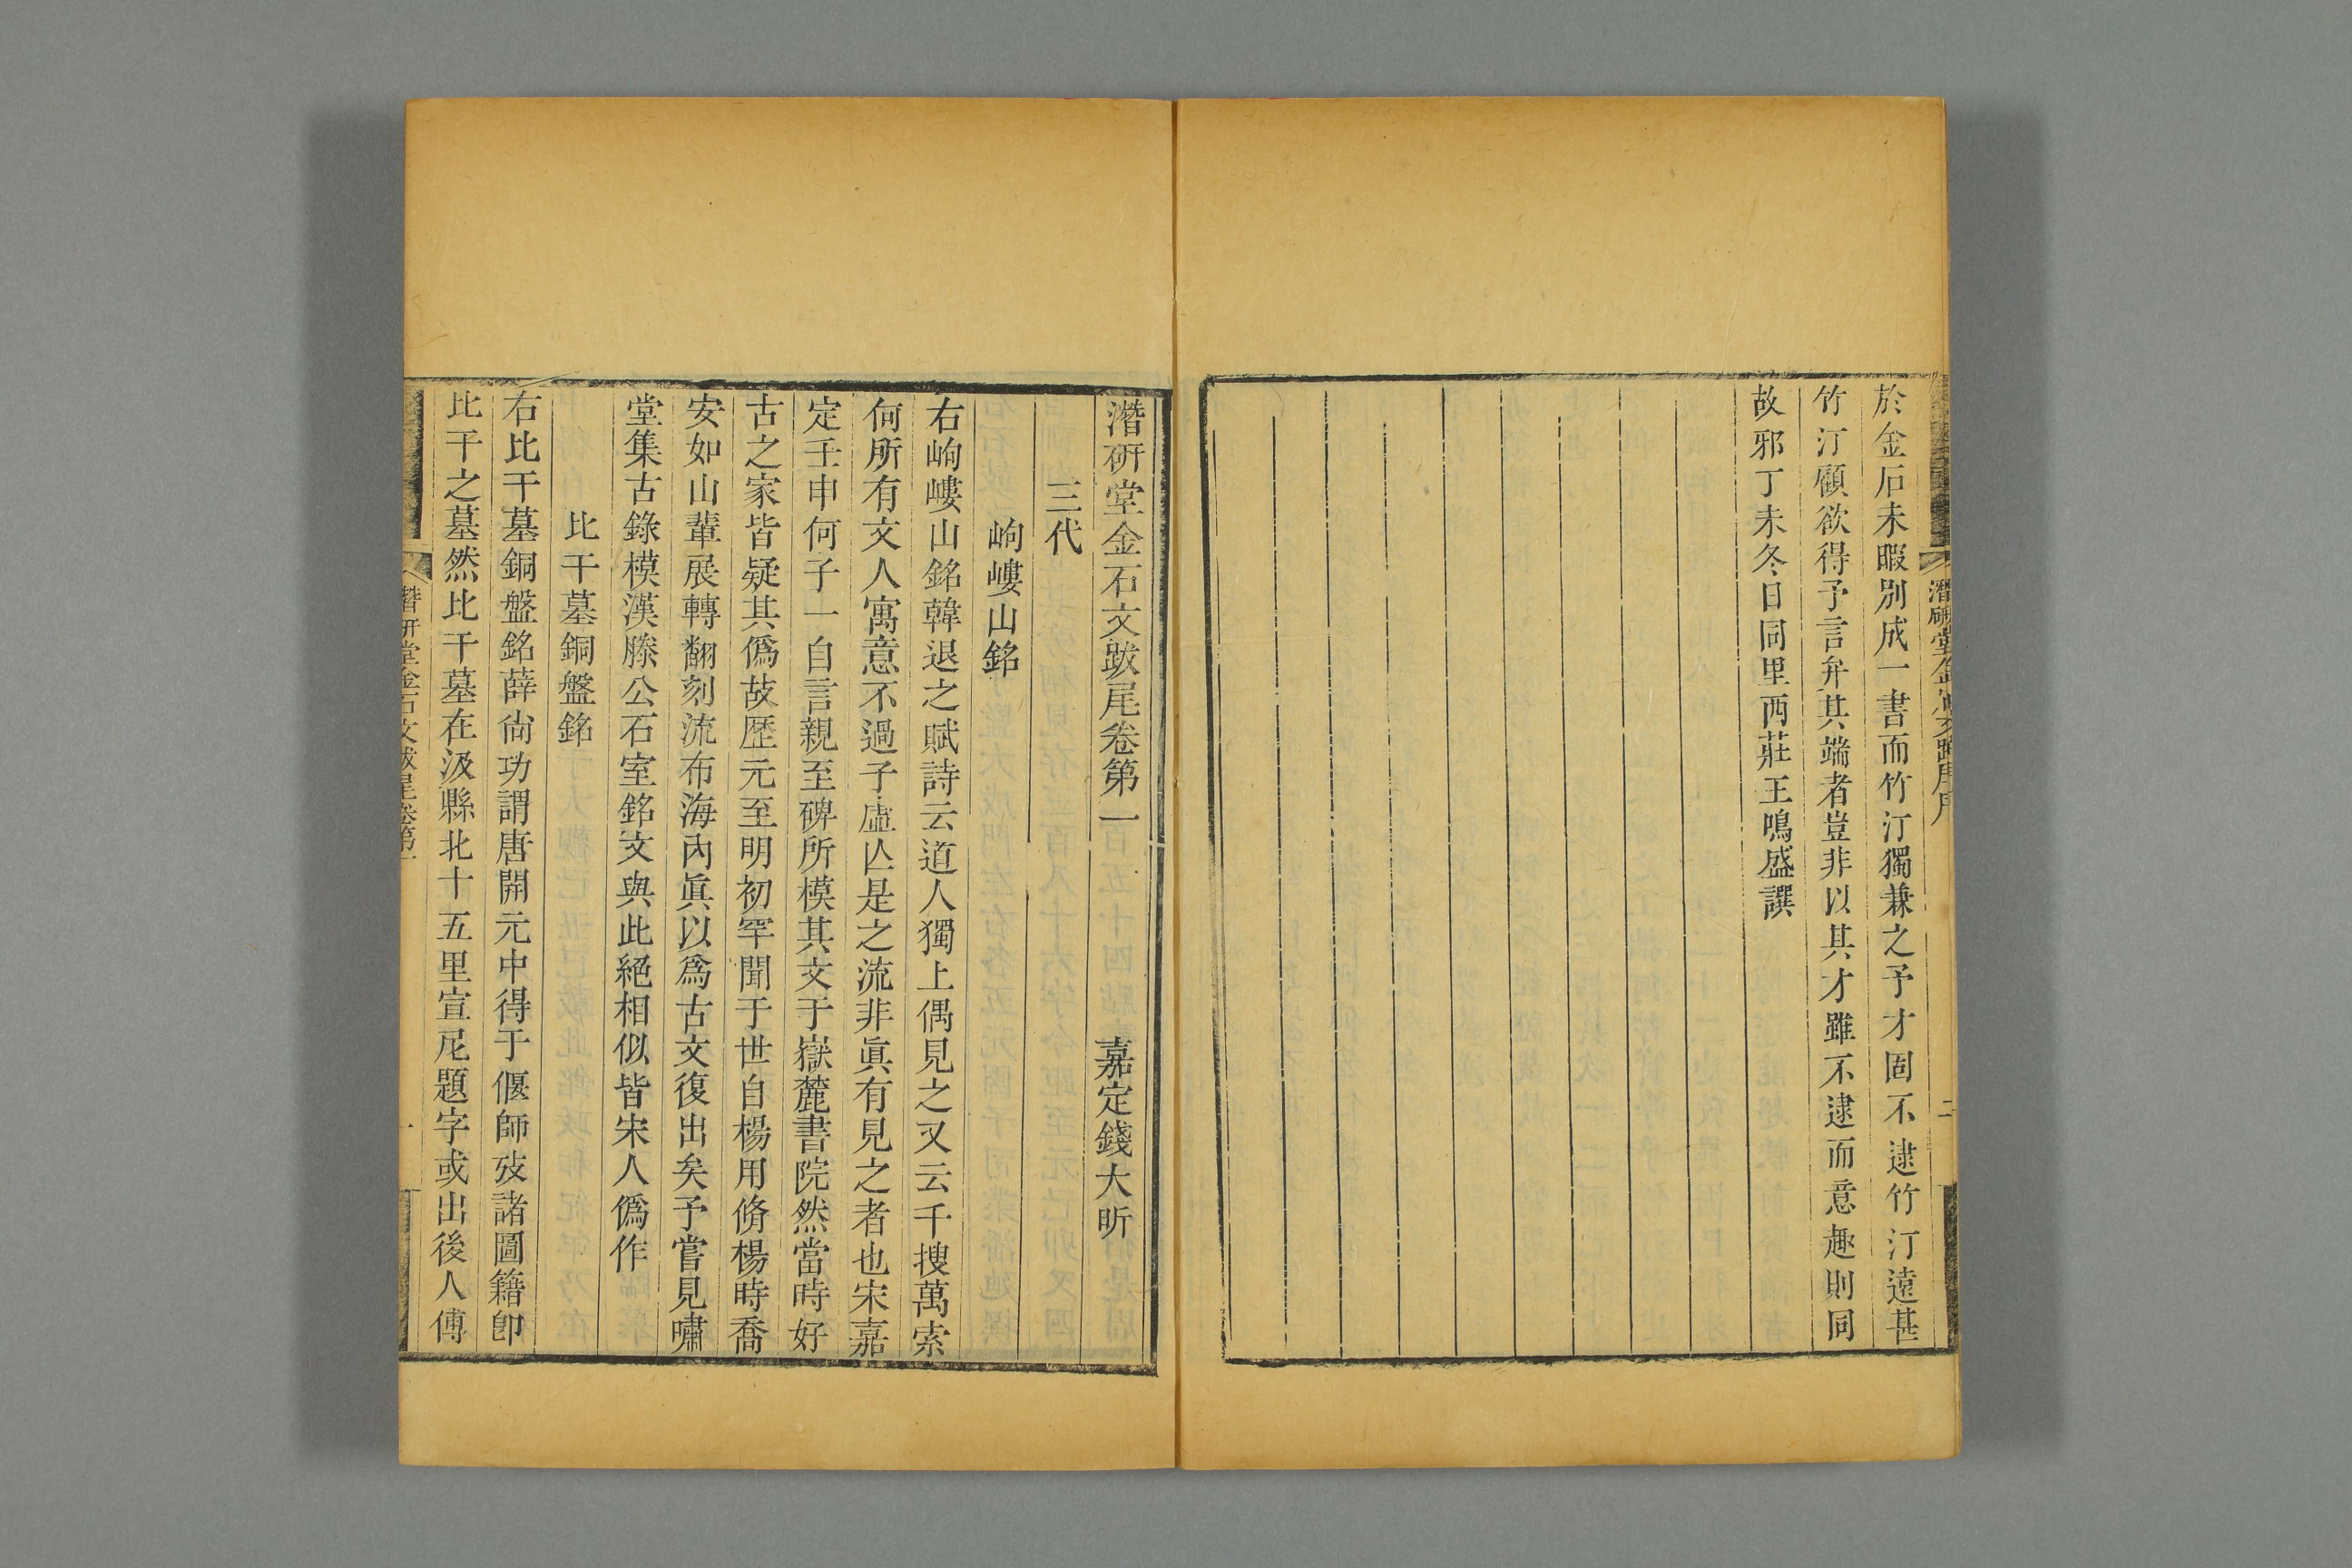 於金石未暇別成一書而竹汀獨兼之予才固不逮竹汀遠甚
竹汀顧欲得予言弁其端者豈非以其才雖不逮而意趣則同
故邪丁未冬日同里西莊王鳴盛譔
潛研堂金石文跋尾卷第一
嘉定錢大昕
三代
岣嶁山銘
右岣嶁山銘韓退之賦詩云道人獨上偶見之又云千搜萬索
何所有文人寓意不過子虛亾是之流非眞有見之者也宋嘉
定壬申何子一自言親至碑所模其文于嶽麓書院然當時好
古之家皆疑其僞故歷元至明初罕聞于世自楊用脩楊時喬
安如山輩展轉翻刻流布海內眞以爲古文復出矣予嘗見嘯
堂集古錄模漢滕公石室銘文與此絕相似皆宋人僞作
比干墓銅盤銘
右比干墓銅盤銘薛尙功謂唐開元中得于偃師攷諸圖籍卽
比干之墓然比干墓在汲縣北十五里宣尼題字或出後人傅
潛研堂金石文跋尾卷第一
一